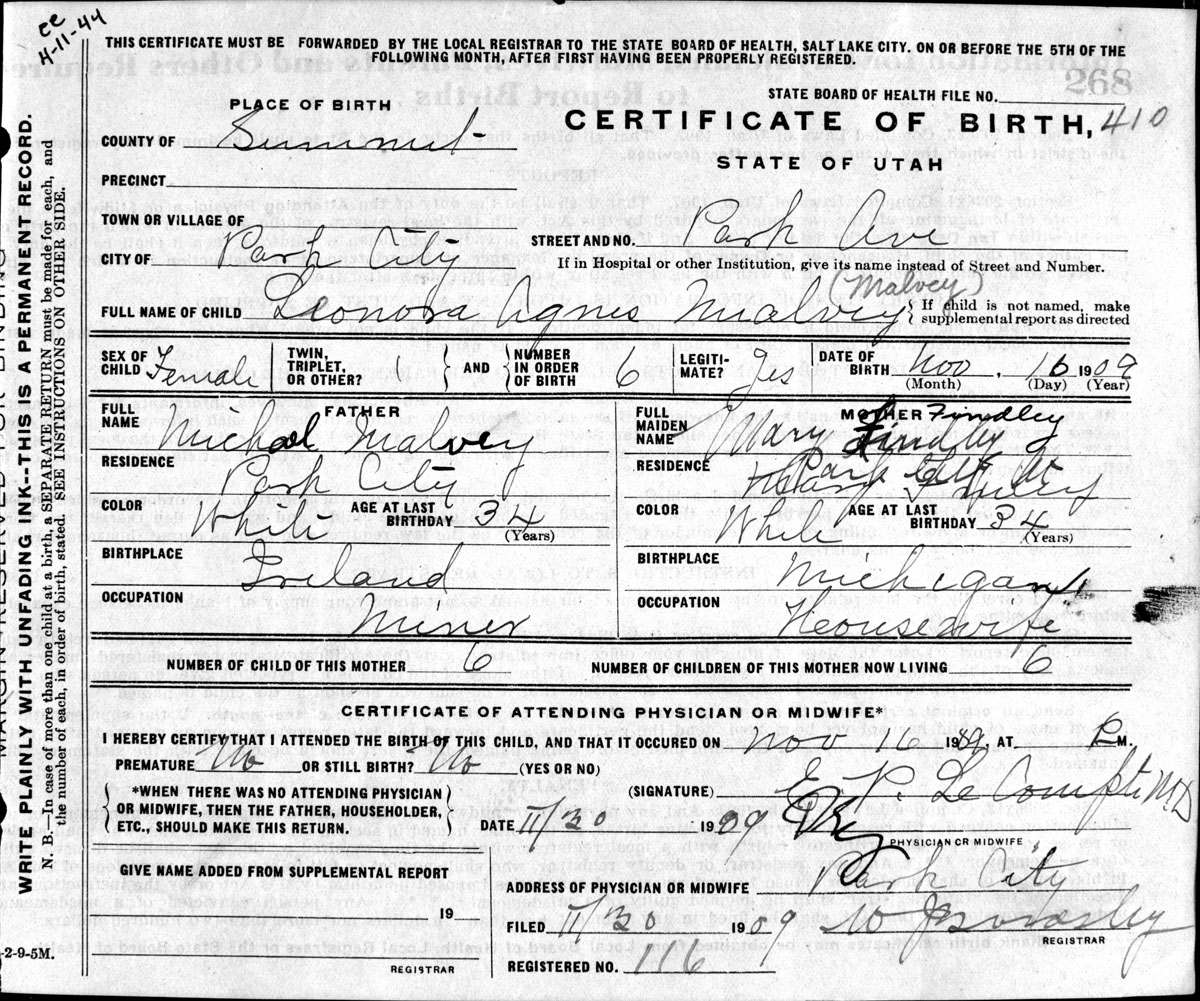 ce
4-11-44
THIS CERTIFICATE MUST BE FORWARDED BY THE LOCAL REGISTRAR TO THE STATE BOARD OF HEALTH, SALT LAKE CITY. ON OR BEFORE THE 5TH OF THE
FOLLOWING MONTH, AFTER FIRST HAVING BEEN PROPERLY REGISTERED.
268
STATE BOARD OF HEALTH FILE NO.
PLACE OF BIRTH
CERTIFICATE OF BIRTH, 410
COUNTY OF Summit
STATE OF UTAH
PRECINCT
TOWN OR VILLAGE OF
CITY OF Park City
STREET AND NO. Park Ave
If in Hospital or other Institution, give its name instead of Street and Number.
(Malvey)
FULL NAME OF CHILD Leonora Agnes Malvey { If child is not named, make supplemental report as directed
SEX OF CHILD Female TWIN, TRIPLET, OR OTHER? AND NUMBER IN ORDER OF BIRTH 6 LEGITI-MATE? Yes DATE OF BIRTH Nov. 16 1909
(Month) (Day) (Year)
FATHER
FULL NAME Michael Malvey
RESIDENCE Park City
COLOR White AGE AT LAST BIRTHDAY 34 (Years)
BIRTHPLACE Ireland
OCCUPATION Miner
MOTHER
FULL MAIDEN NAME Mary Findley
RESIDENCE Park City
COLOR White AGE AT LAST BIRTHDAY 34 (Years)
BIRTHPLACE Michigan
OCCUPATION Housewife
NUMBER OF CHILD OF THIS MOTHER 6 NUMBER OF CHILDREN OF THIS MOTHER NOW LIVING 6
CERTIFICATE OF ATTENDING PHYSICIAN OR MIDWIFE*
I HEREBY CERTIFY THAT I ATTENDED THE BIRTH OF THIS CHILD, AND THAT IT OCCURED ON Nov 16 1909, AT P M.
PREMATURE No OR STILL BIRTH? No (YES OR NO)
*WHEN THERE WAS NO ATTENDING PHYSICIAN
OR MIDWIFE, THEN THE FATHER, HOUSEHOLDER,
ETC., SHOULD MAKE THIS RETURN.
(SIGNATURE) E. P. LeCompte M.D
DATE 11/30 1909
PHYSICIAN OR MIDWIFE
GIVE NAME ADDED FROM SUPPLEMENTAL REPORT
19
REGISTRAR
ADDRESS OF PHYSICIAN OR MIDWIFE Park City
FILED 11/30 1909
REGISTRAR
REGISTERED NO. 116
WRITE PLAINLY WITH UNFADING INK--THIS IS A PERMANENT RECORD.
N. B.—In case of more than one child at a birth, a SEPARATE RETURN must be made for each, and
the number of each, in order of birth, stated. SEE INSTRUCTIONS ON OTHER SIDE.
-2-9-5M.